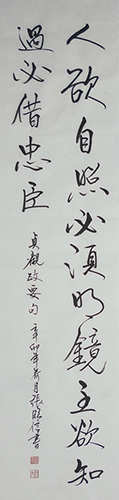 人欲自照必須明鏡主欲知
過必借忠臣
貞觀政要句 辛卯年荷月張信書